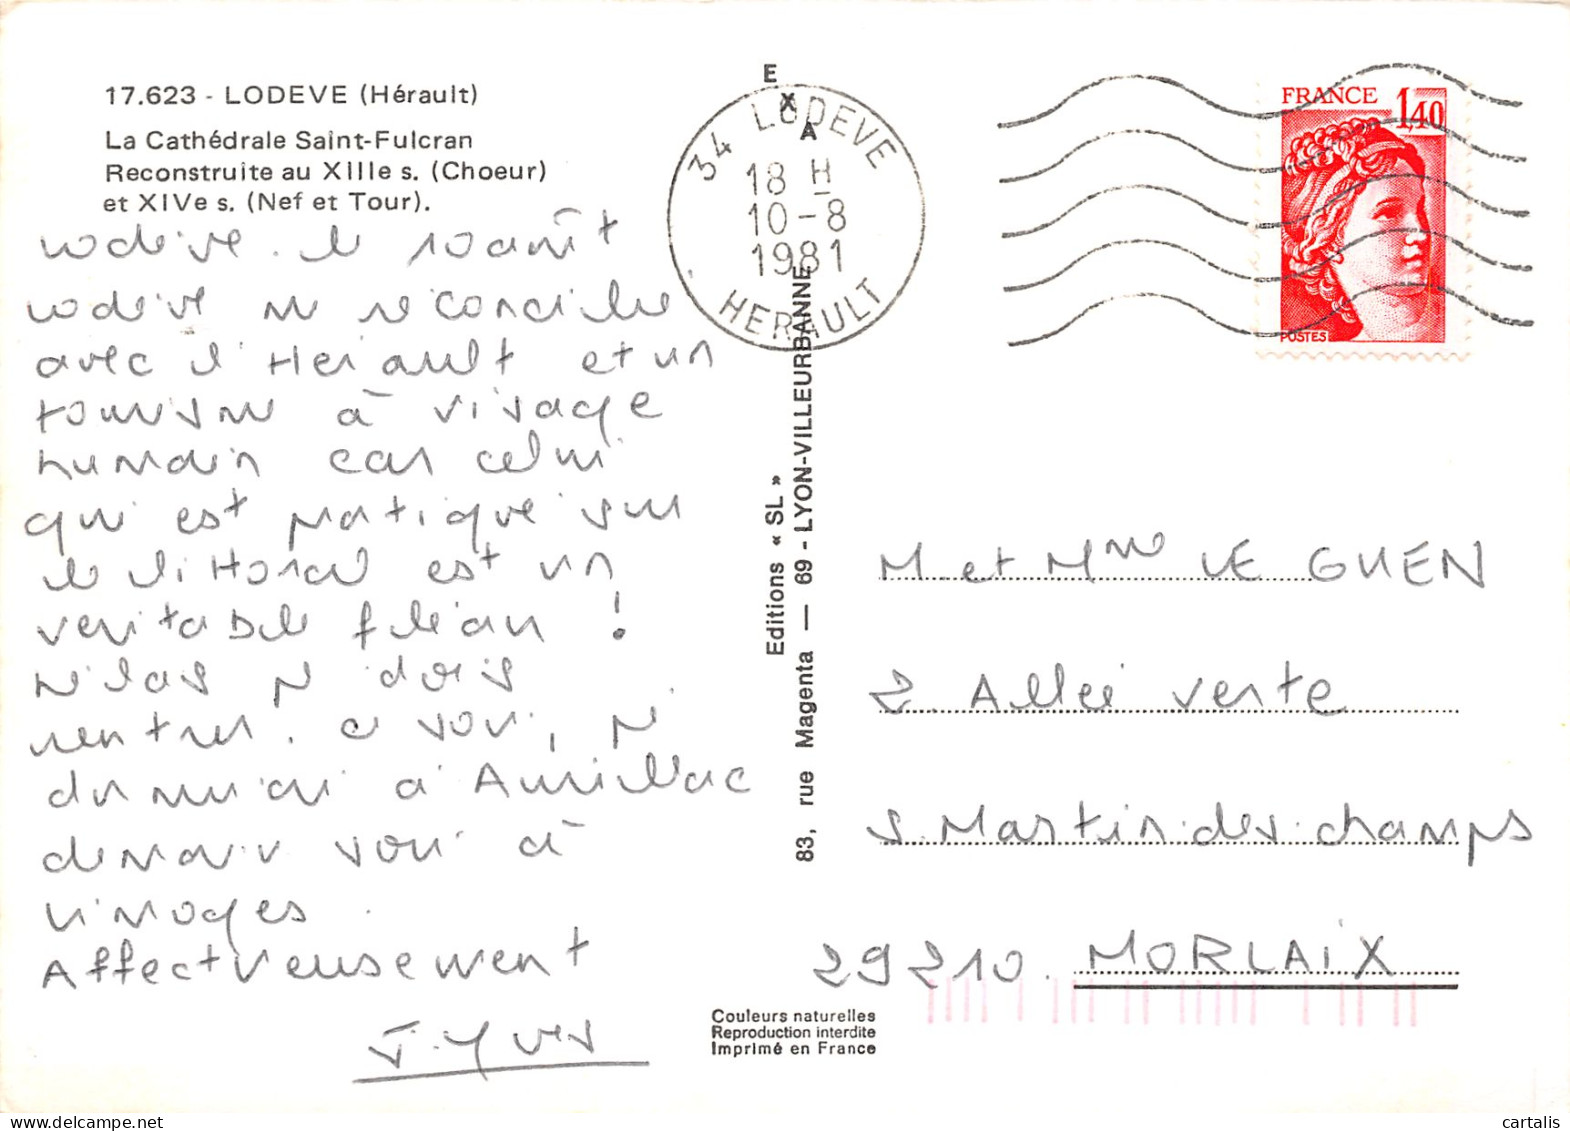 17.623 - LODEVE (Hérault)
La Cathédrale Saint-Fulcran
Reconstruite au XIIIe s. (Choeur)
et XIVe s. (Nef et Tour).
Lodève. le 10 août
Lodève me réconcilie
avec l'Hérault et un
tourisme à visage
humain car celui
qui est pratiqué sur
le littoral est un
véritable fléau !
hélas je dois
rentrer. ce soir, je
dormirai à Aurillac
demain soir à
Limoges.
Affectueusement
J. Yves
E
X
A
34 LODEVE
18 H
10-8
1981
HERAULT
FRANCE 1,40
POSTES
Editions « SL »
83, rue Magenta — 69 - LYON-VILLEURBANNE
M et Mme LE GUEN
2 Allée verte
S. Martin des champs
29210. MORLAIX
Couleurs naturelles
Reproduction interdite
Imprimé en France
cartalis